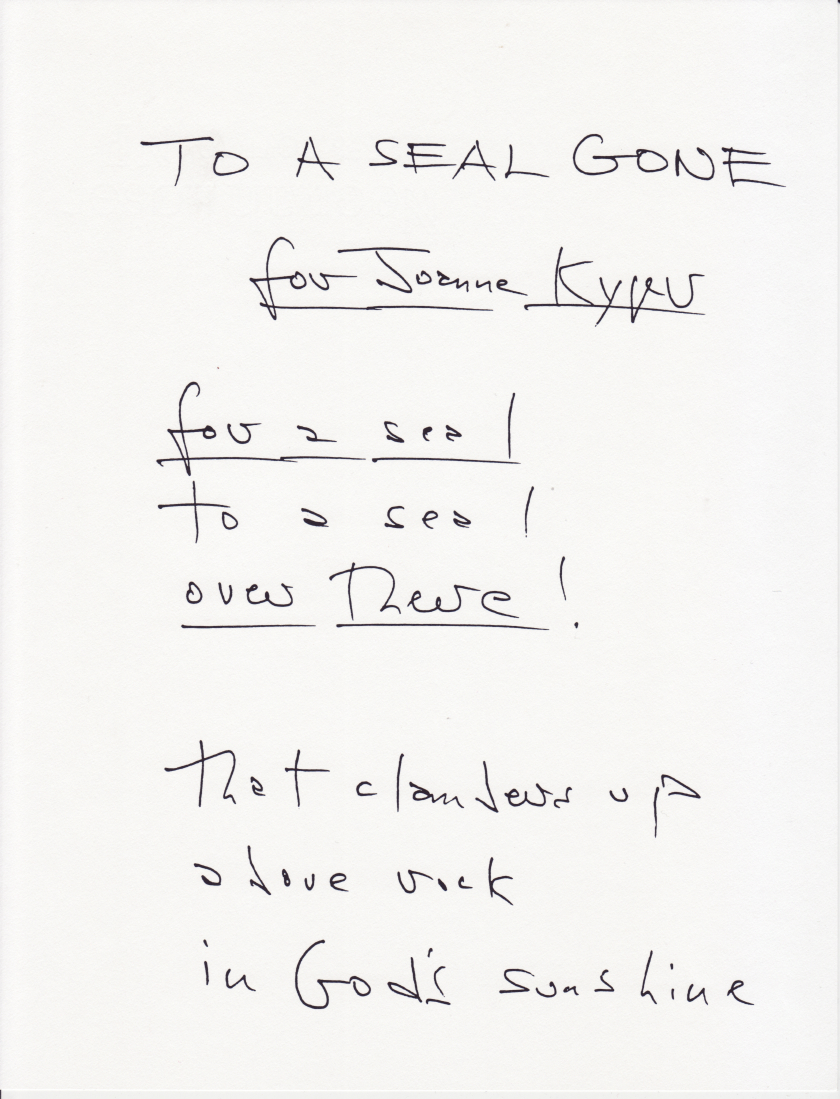 TO A SEAL GONE
for Joanne Kyger
for a seal
to a seal
over there!
that clambers up
above rock
in God's sunshine